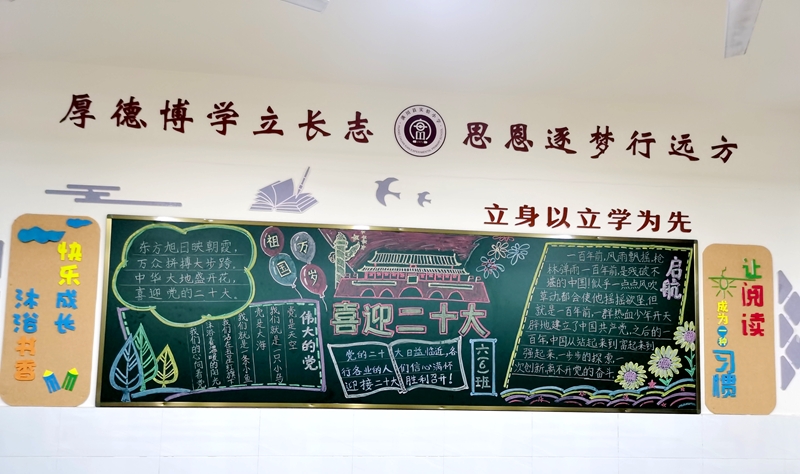 厚德博学立长志
思恩逐梦行远方
立身以立学为先
快乐成长
沐浴书香
东方旭日映朝霞，
万众拼搏大步跨，
中华大地盛开花，
喜迎党的二十大。
祖国万岁
伟大的党
党是天空
我们就是一只小鸟
党是大海
我们就是一条小鱼
我们的心向着党
喜迎二十大
党的二十大日益临近，各
行各业的人们信心满怀
迎接二十大胜利召开！
六(6)班
启航
一百年前，风雨飘摇，枪
林弹雨一百年前是风破不
堪的中国！似乎一点点风吹
草动都会使他摇摇欲坠，但
就是一百年前，一群热血少年开天
辟地建立了中国共产党，之后的一
百年，中国人站起来到富起来到
强起来一步步的探索，一
次创新，离不开党的奋斗
让阅读
成为一种
习惯